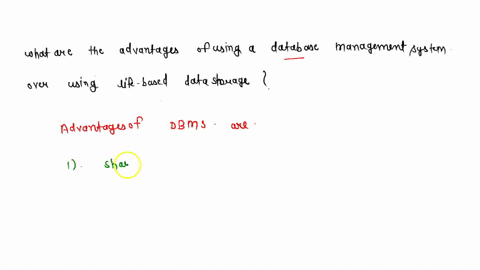 what are the advantages of using a database management system.
over using life-based data storage ?
Advantages of DBMS. are.
1). shar